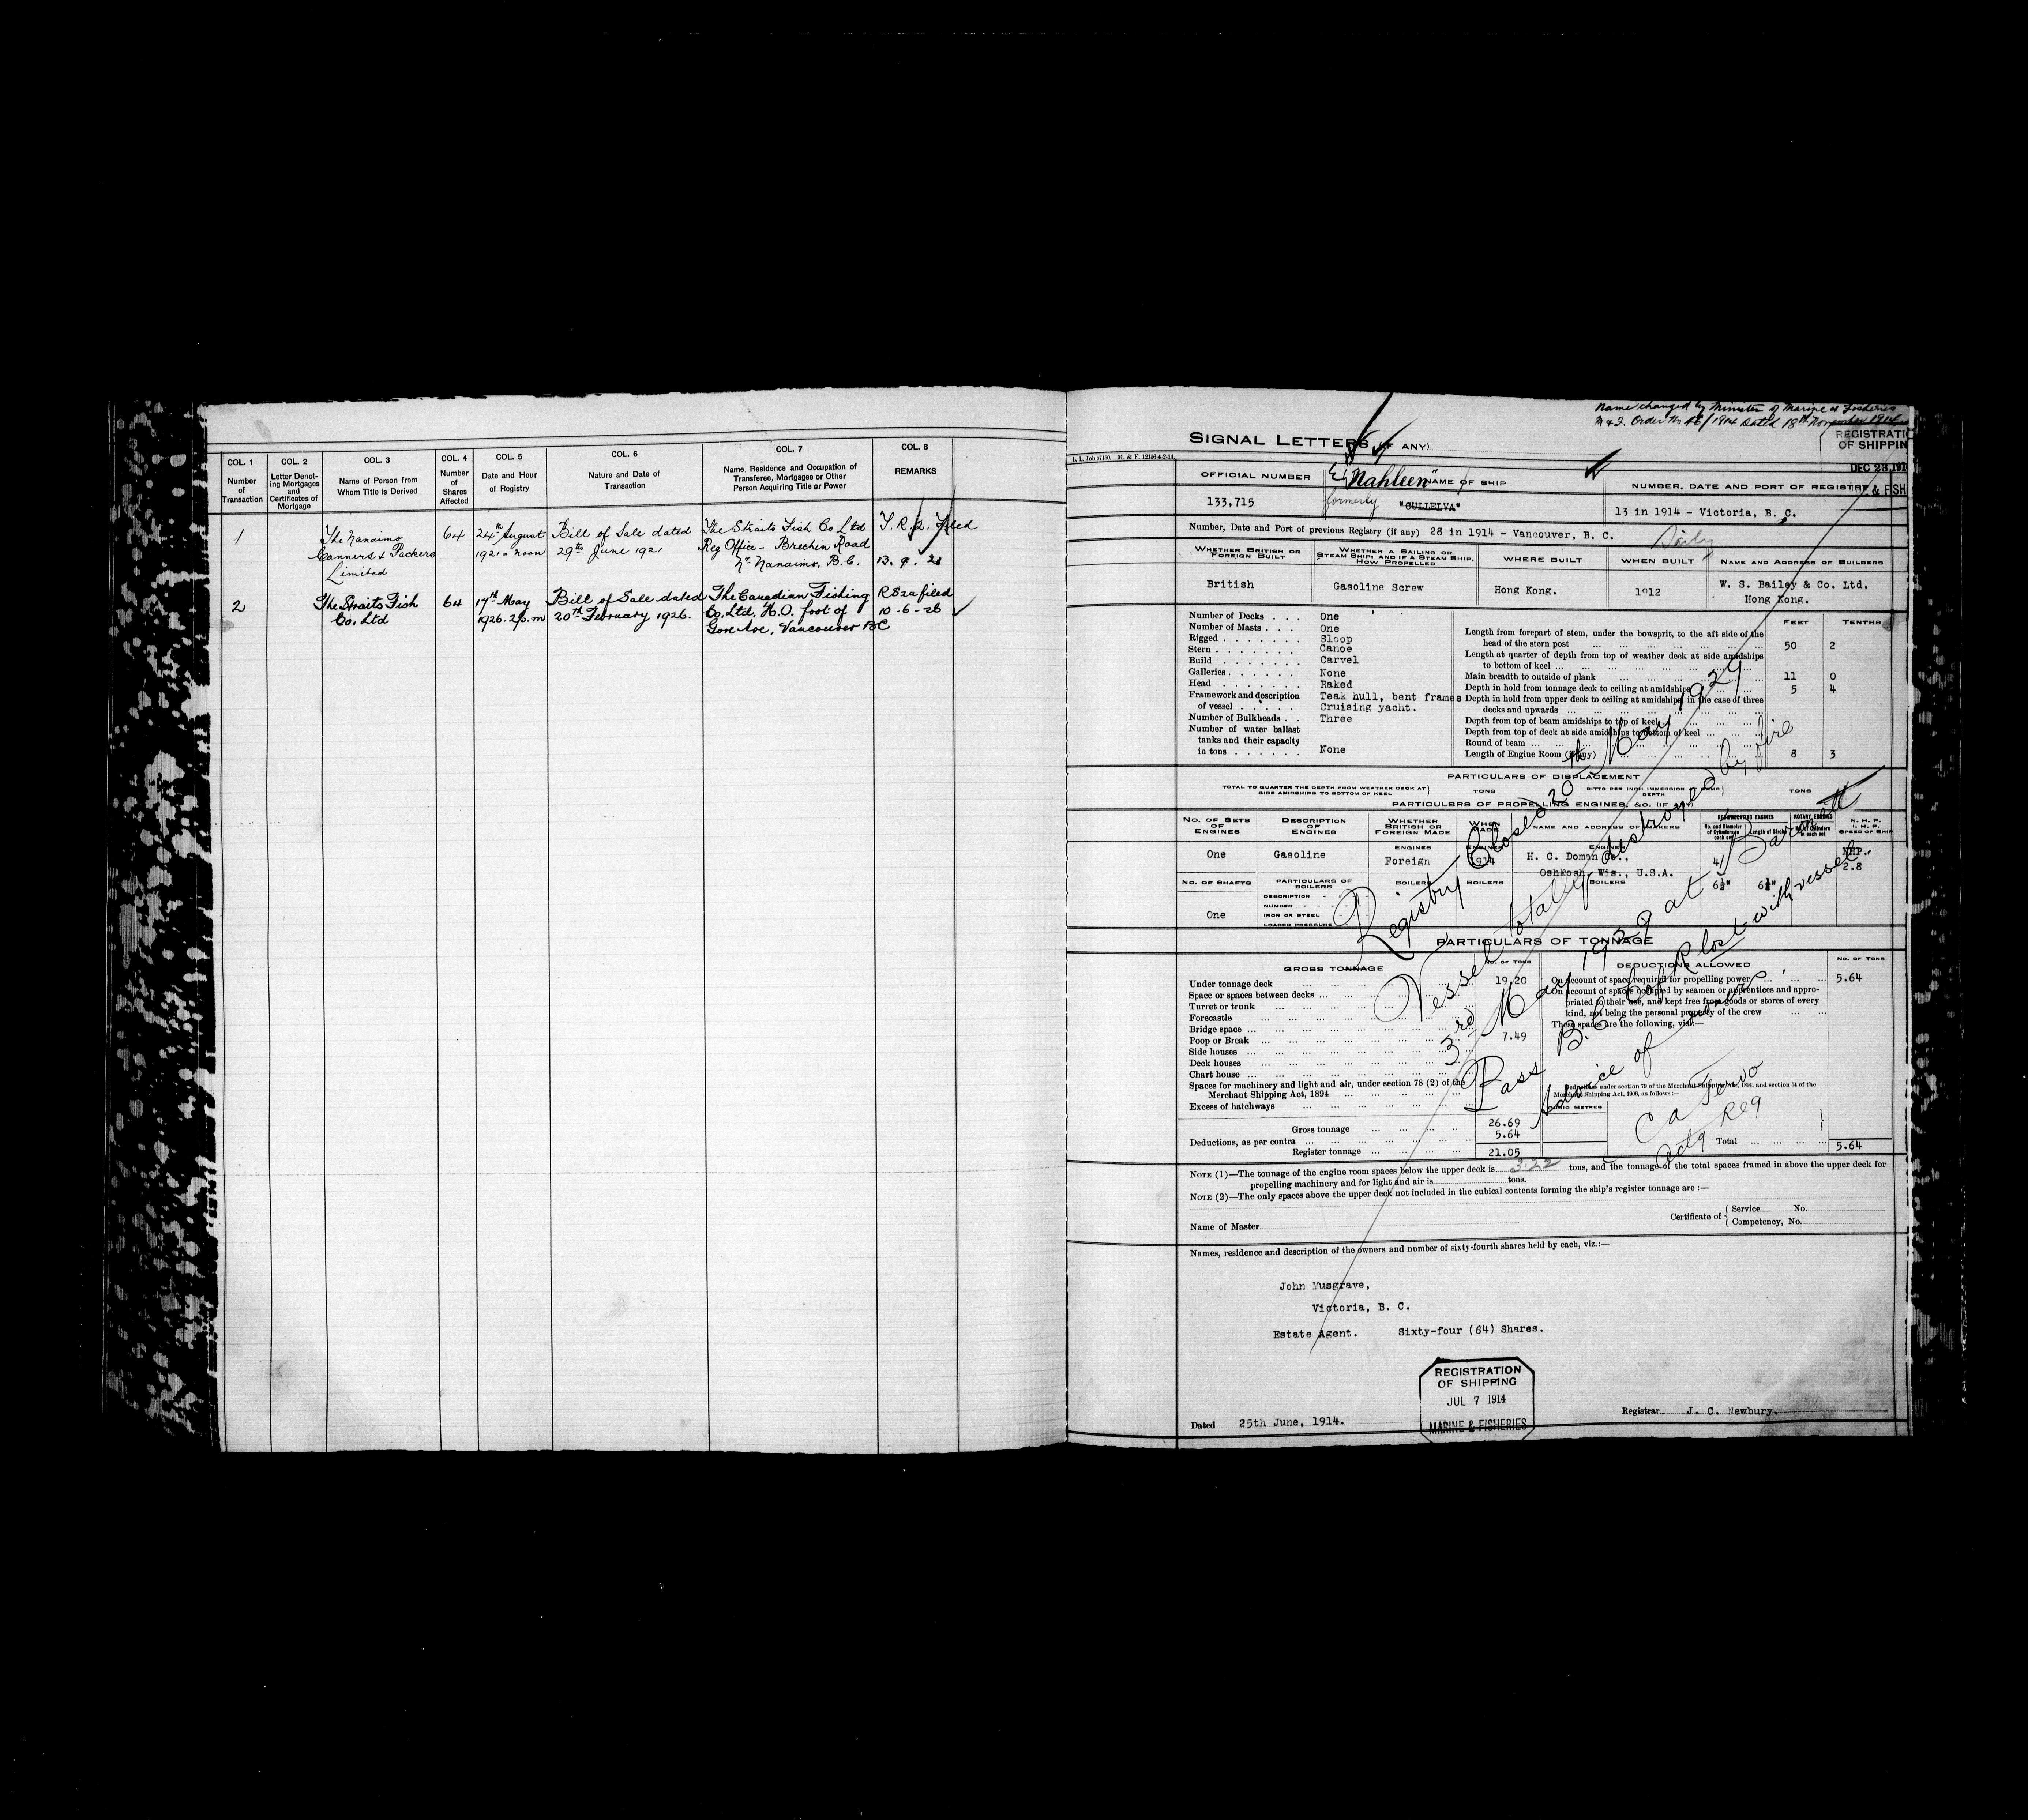 COL. 1
Number
of
Transaction
COL. 2
Letter Denot-
ing Mortgages
and
Certificates of
Mortgage
COL. 3
Name of Person from
Whom Title is Derived
COL. 4
Number
of
Shares
Affected
COL. 5
Date and Hour
of Registry
COL. 6
Nature and Date of
Transaction
COL. 7
Name, Residence and Occupation of
Transferee, Mortgagee or Other
Person Acquiring Title or Power
COL. 8
REMARKS
1
The Nanaimo
Canners & Packers
Limited
64
24th August
1921 - noon
Bill of Sale dated
29th June 1921
The Straits Fish Co Ltd
Reg Office - Brechin Road
Nr Nanaimo, B.C.
filed
13. 9. 21
2
The Straits Fish
Co. Ltd
64
17th May
1926. 2 p.m
Bill of Sale dated
20th February 1926.
The Canadian Fishing
Co. Ltd. H.O. foot of
Gore Ave, Vancouver BC
filed
10-6-26
Name changed by Minister of Marine & Fisheries
M & F. Order No 46/1914 Dated 18th November 1914
SIGNAL LETTERS (IF ANY)
REGISTRATI
OF SHIPPIN
DEC 23 191
& FISH
L. L. Job 57150. M. & F. 12136 4-2-14.
OFFICIAL NUMBER
NAME OF SHIP
NUMBER, DATE AND PORT OF REGISTRY
133,715
"Nahleen"
formerly "CULLELVA"
13 in 1914 - Victoria, B. C.
Number, Date and Port of previous Registry (if any) 28 in 1914 - Vancouver, B. C.
WHETHER BRITISH OR
FOREIGN BUILT
WHETHER A SAILING OR
STEAM SHIP; AND IF A STEAM SHIP,
HOW PROPELLED
WHERE BUILT
WHEN BUILT
NAME AND ADDRESS OF BUILDERS
British
Gasoline Screw
Hong Kong.
1912
W. S. Bailey & Co. Ltd.
Hong Kong.
Number of Decks One
Number of Masts One
Rigged Sloop
Stern Canoe
Build Carvel
Galleries None
Head Raked
Framework and description Teak hull, bent frames
of vessel Cruising yacht.
Number of Bulkheads Three
Number of water ballast
tanks and their capacity
in tons None
FEET TENTHS
Length from forepart of stem, under the bowsprit, to the aft side of the
head of the stern post 50 2
Length at quarter of depth from top of weather deck at side amidships
to bottom of keel
Main breadth to outside of plank 11 0
Depth in hold from tonnage deck to ceiling at amidships 5 4
Depth in hold from upper deck to ceiling at amidships, in the case of three
decks and upwards
Depth from top of beam amidships to top of keel
Depth from top of deck at side amidships to bottom of keel
Round of beam
Length of Engine Room (if any) 8 3
PARTICULARS OF DISPLACEMENT
TOTAL TO QUARTER THE DEPTH FROM WEATHER DECK AT
SIDE AMIDSHIPS TO BOTTOM OF KEEL
TONS
DITTO PER INCH IMMERSION
DEPTH
TONS
PARTICULARS OF PROPELLING ENGINES, &C. (IF ANY)
NO. OF SETS
OF
ENGINES
DESCRIPTION
OF
ENGINES
WHETHER
BRITISH OR
FOREIGN MADE
WHEN
MADE
NAME AND ADDRESS OF MAKERS
RECIPROCATING ENGINES
No. and Diameter
of Cylinders in
each set
Length of Stroke
ROTARY ENGINES
No. of Cylinders
in each set
N. H. P.
I. H. P.
SPEED OF SHIP
One
Gasoline
ENGINES
Foreign
ENGINES
1914
ENGINES
H. C. Doman Co.,
Oshkosh, Wis., U.S.A.
4
6½"
6½"
NHP.
2.8
NO. OF SHAFTS
PARTICULARS OF
BOILERS
BOILERS
BOILERS
BOILERS
One
DESCRIPTION
NUMBER
IRON OR STEEL
LOADED PRESSURE
PARTICULARS OF TONNAGE
GROSS TONNAGE
NO. OF TONS
DEDUCTIONS ALLOWED
NO. OF TONS
Under tonnage deck 19.20
Space or spaces between decks
Turret or trunk
Forecastle
Bridge space
Poop or Break 7.49
Side houses
Deck houses
Chart house
Spaces for machinery and light and air, under section 78 (2) of the
Merchant Shipping Act, 1894
Excess of hatchways
Gross tonnage 26.69
Deductions, as per contra 5.64
Register tonnage 21.05
On account of space required for propelling power 5.64
On account of spaces occupied by seamen or apprentices and appro-
priated to their use, and kept free from goods or stores of every
kind, not being the personal property of the crew
These spaces are the following, viz.:—
Deductions under section 79 of the Merchant Shipping Act, 1894, and section 54 of the
Merchant Shipping Act, 1906, as follows:—
CUBIC METRES
Total 5.64
Registry Closed 20th May 1929
Vessel totally destroyed by fire
3rd May 1929 at Barnett
Pass B.C. C of R lost with vessel
Advice of owner
Actg Reg
NOTE (1)—The tonnage of the engine room spaces below the upper deck is 3.22 tons, and the tonnage of the total spaces framed in above the upper deck for
propelling machinery and for light and air is tons.
NOTE (2)—The only spaces above the upper deck not included in the cubical contents forming the ship's register tonnage are :—
Name of Master
Certificate of
Service No.
Competency, No.
Names, residence and description of the owners and number of sixty-fourth shares held by each, viz.:—
John Musgrave,
Victoria, B. C.
Estate Agent. Sixty-four (64) Shares.
REGISTRATION
OF SHIPPING
JUL 7 1914
MARINE & FISHERIES
Dated 25th June, 1914.
Registrar. J. C. Newbury.